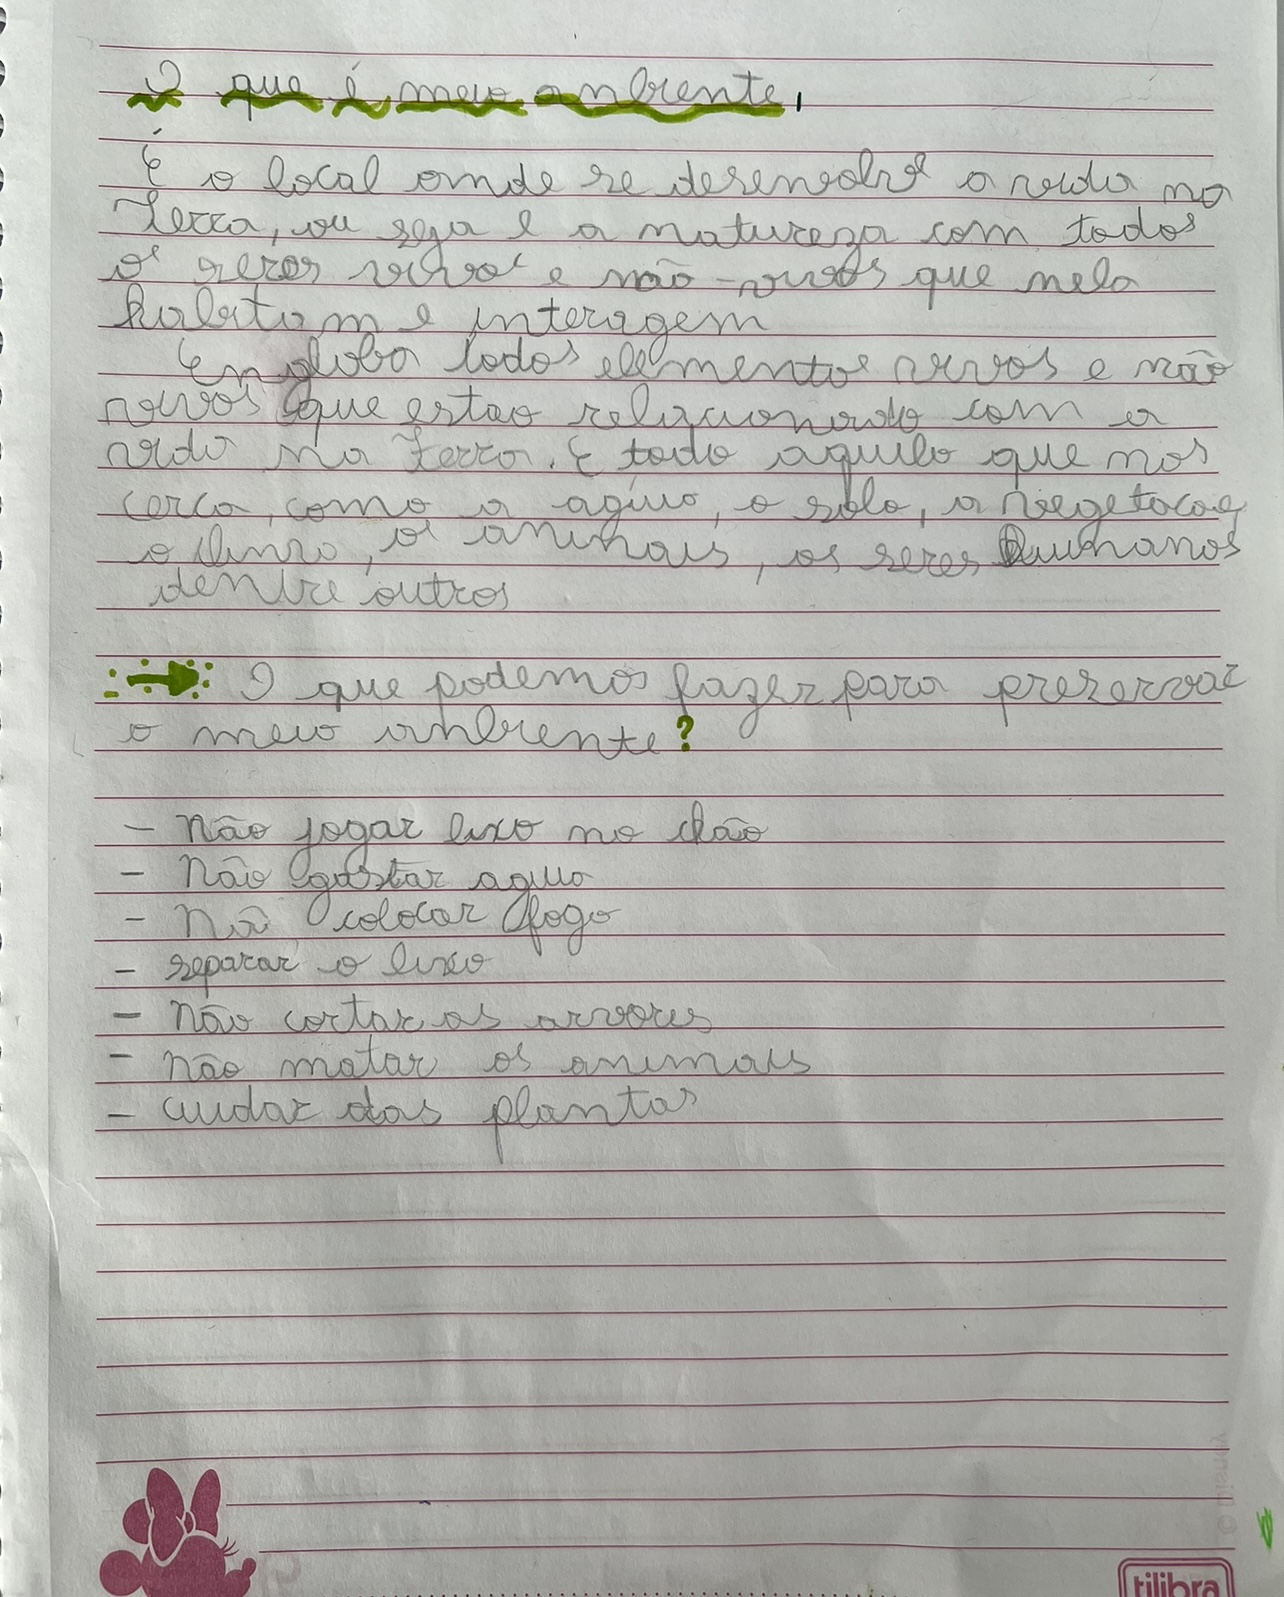 O que é meio anbiente,
É o local onde se desenvolve a vida na
Terra, ou seja e a natureza com todos
os seres vivos e não-vivos que nela
habitam e interagem
Engloba todos elementos vivos e não
vivos que estao relacionado com a
vida na Terra. E todo aquilo que nos
cerca, como a agua, o solo, a vegetacao
o clima, os animais, os seres humanos
dentre outros
O que podemos fazer para prezervar
o meio anbiente?
- Não jogar lixo no chão
- Não gastar agua
- Nã colocar fogo
- separar o lixo
- Não cortar as arvores
- não matar os animais
- cuidar das plantas
© Disney
tilibra